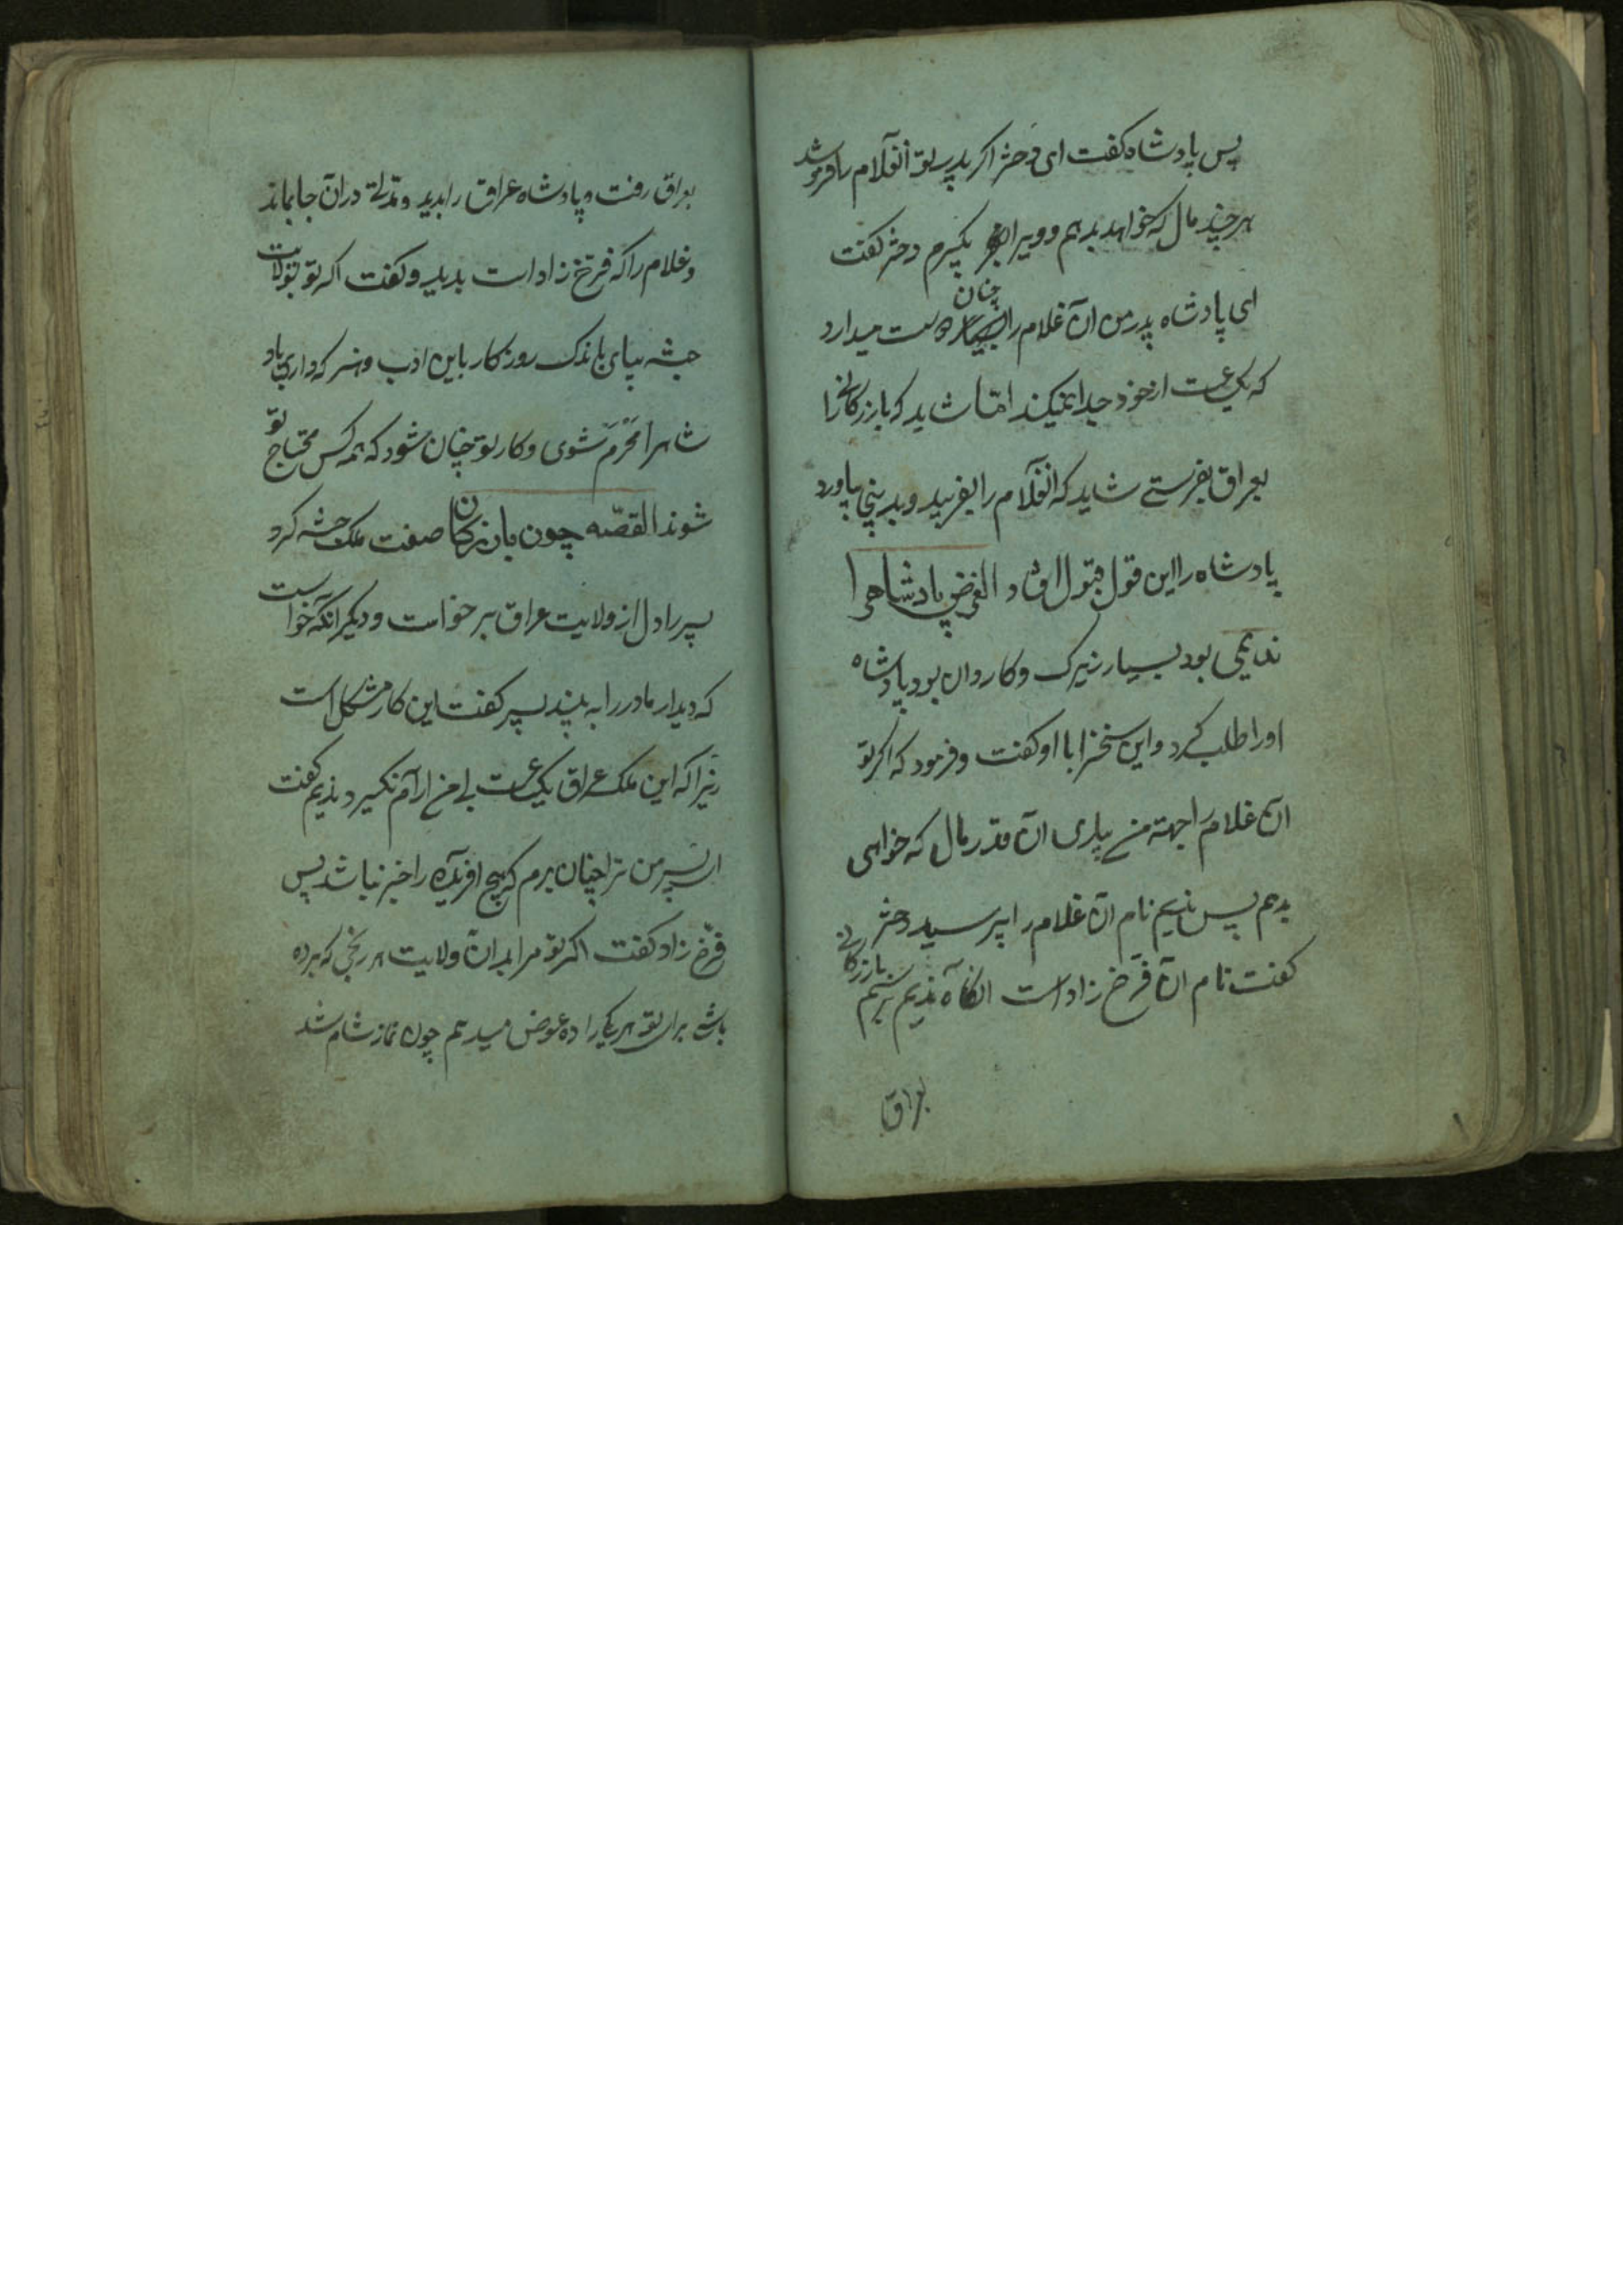 پس پادشاه کفت ای دختر اکر پدر تو انغلام را فروشد
هر چند مال که خواهد بدهم و ویرا بکیرم دختر کفت
ای پادشاه پدر من ان غلام را چنان دوست میدارد
که یکساعت از خود جدا نمیکند اما شاید که بازرکانرا
بعراق بفرستے شاید که انغلام را بفریبد و بدینجا بیاورد
پادشاه را این قول قبول افتاد الغرض پادشاهرا
ندیمی بود بسیار زیرک و کاردان بود پادشاه
اورا طلب کرد و این سخنرا با او کفت و فرمود که اکر تو
ان غلام را جهته من بیاری ان قدر مال که خواهی
بدهم پس ندیم نام ان غلام را پرسید دختر
کفت نام ان فرخ زاد است انکاه ندیم برسم بازرکانے
بعراق
بعراق رفت و پادشاه عراق را بدید و مدتے دران جا بماند
و غلام را که فرخ زاد است بدید و کفت اکر تو بولایت
حبشه بیای باندک روزکار باین ادب و هنر که داری پاد
شاهرا محرم شوی و کار تو چنان شود که همه کس محتاج تو
شوند القصّه چون بازرکان صفت ملک حبشه کرد
پسر را دل از ولایت عراق برخواست و دیکر انکه خواست
که دیدار مادر را به بیند پسر کفت این کار مشکل است
زیرا که این ملک عراق یکساعت بے من ارام نکیرد ندیم کفت
ای پسر من ترا چنان برم که هیچ افریده را خبر نباشد پس
فرّخ زاد کفت اکر تو مرا بدان ولایت هر رنجی که برده
باشے برای تو هر یکیرا ده عوض میدهم چون نماز شام شد